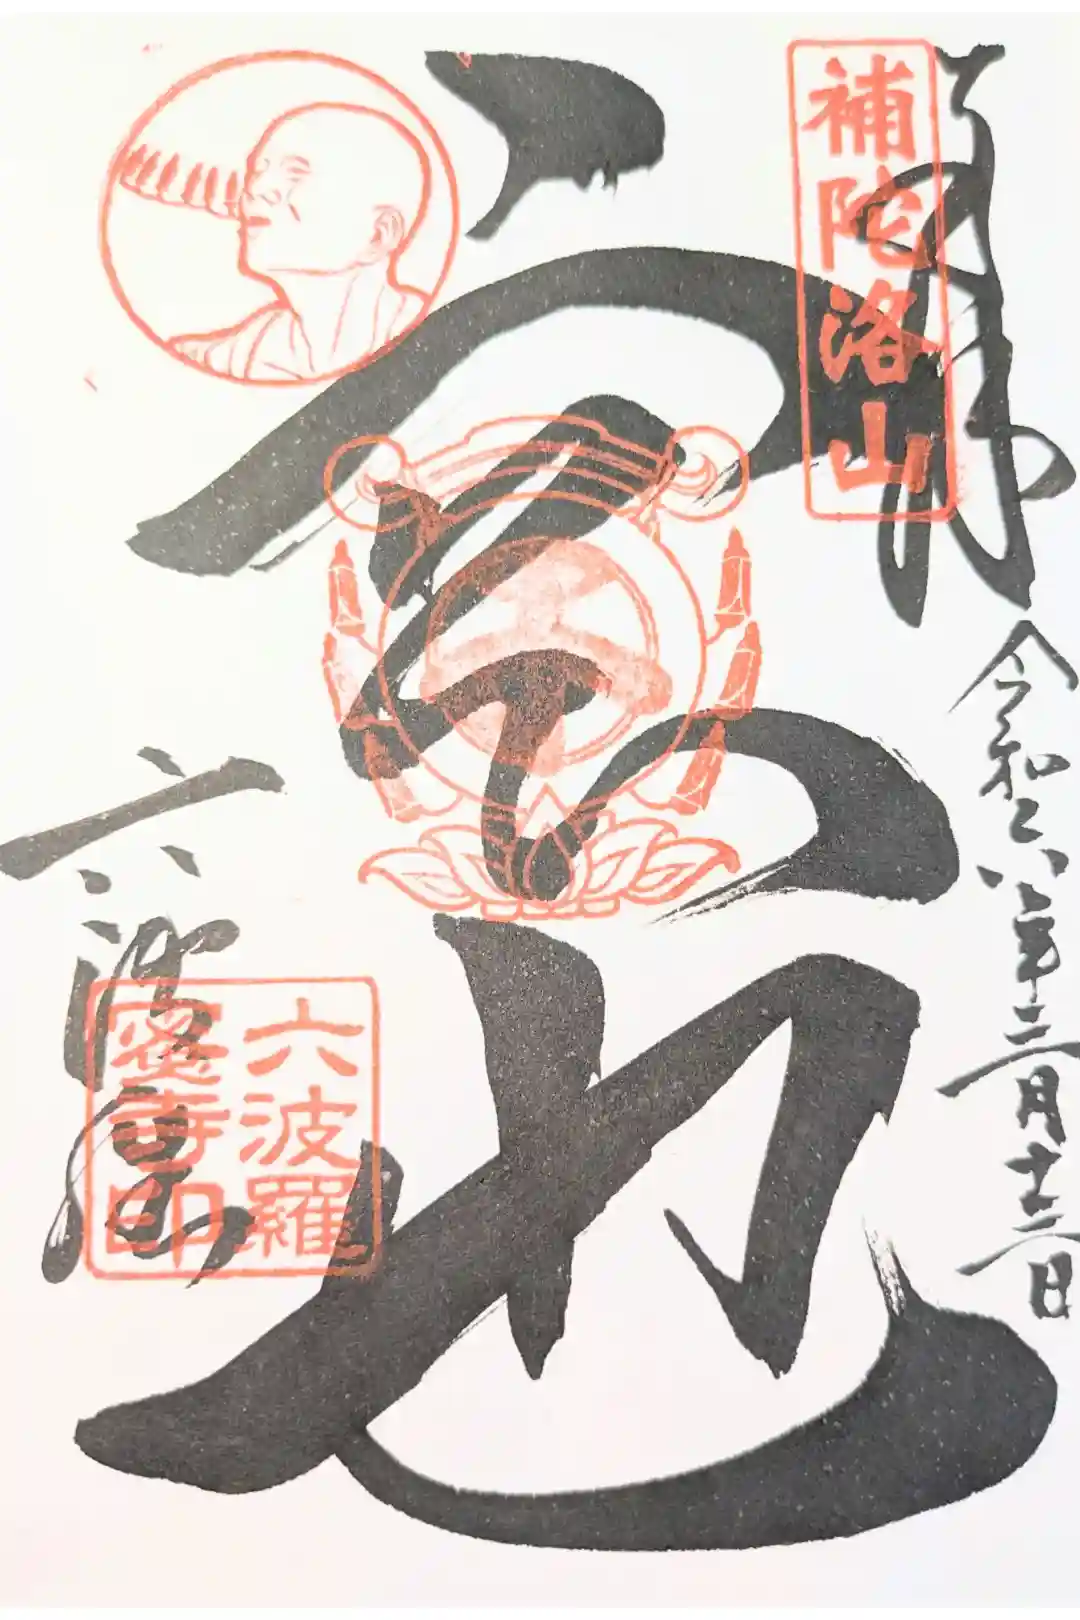 奉拝
補陀洛山
令和六年三月十三日
空也
六波
六波羅
蜜寺印